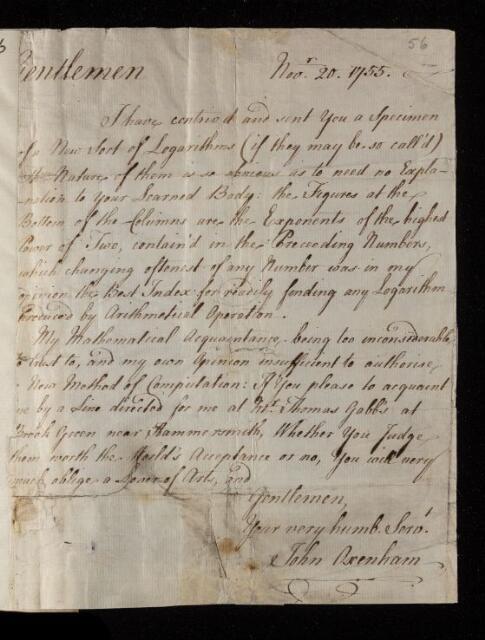 56
Gentlemen Novr. 20. 1755.
I have contriv'd and sent You a Specimen
of a New Sort of Logarithms (if they may be so call'd)
the Nature of them is so obvious as to need no Expla-
nation to Your Learned Body: the Figures at the
Bottom of the Columns are the Exponents of the highest
Power of Two, contain'd in the Preceeding Numbers,
which changing oftenest of any Number was in my
opinion the Best Index for readily finding any Logarithm
produced by Arithmetical Operation.
My Mathematical Acquaintance, being too inconsiderable
to trust to, and my own Opinion insufficient to authorise
New Method of Computation: If You please to acquaint
me by a Line directed for me at Mr. Thomas Gabb's at
Brook Green near Hammersmith, Whether You Judge
them worth the World's Acceptance or no, You will very
much oblige a Lover of Arts, and
Gentlemen,
Your very humb. Servt.
John Oxenham